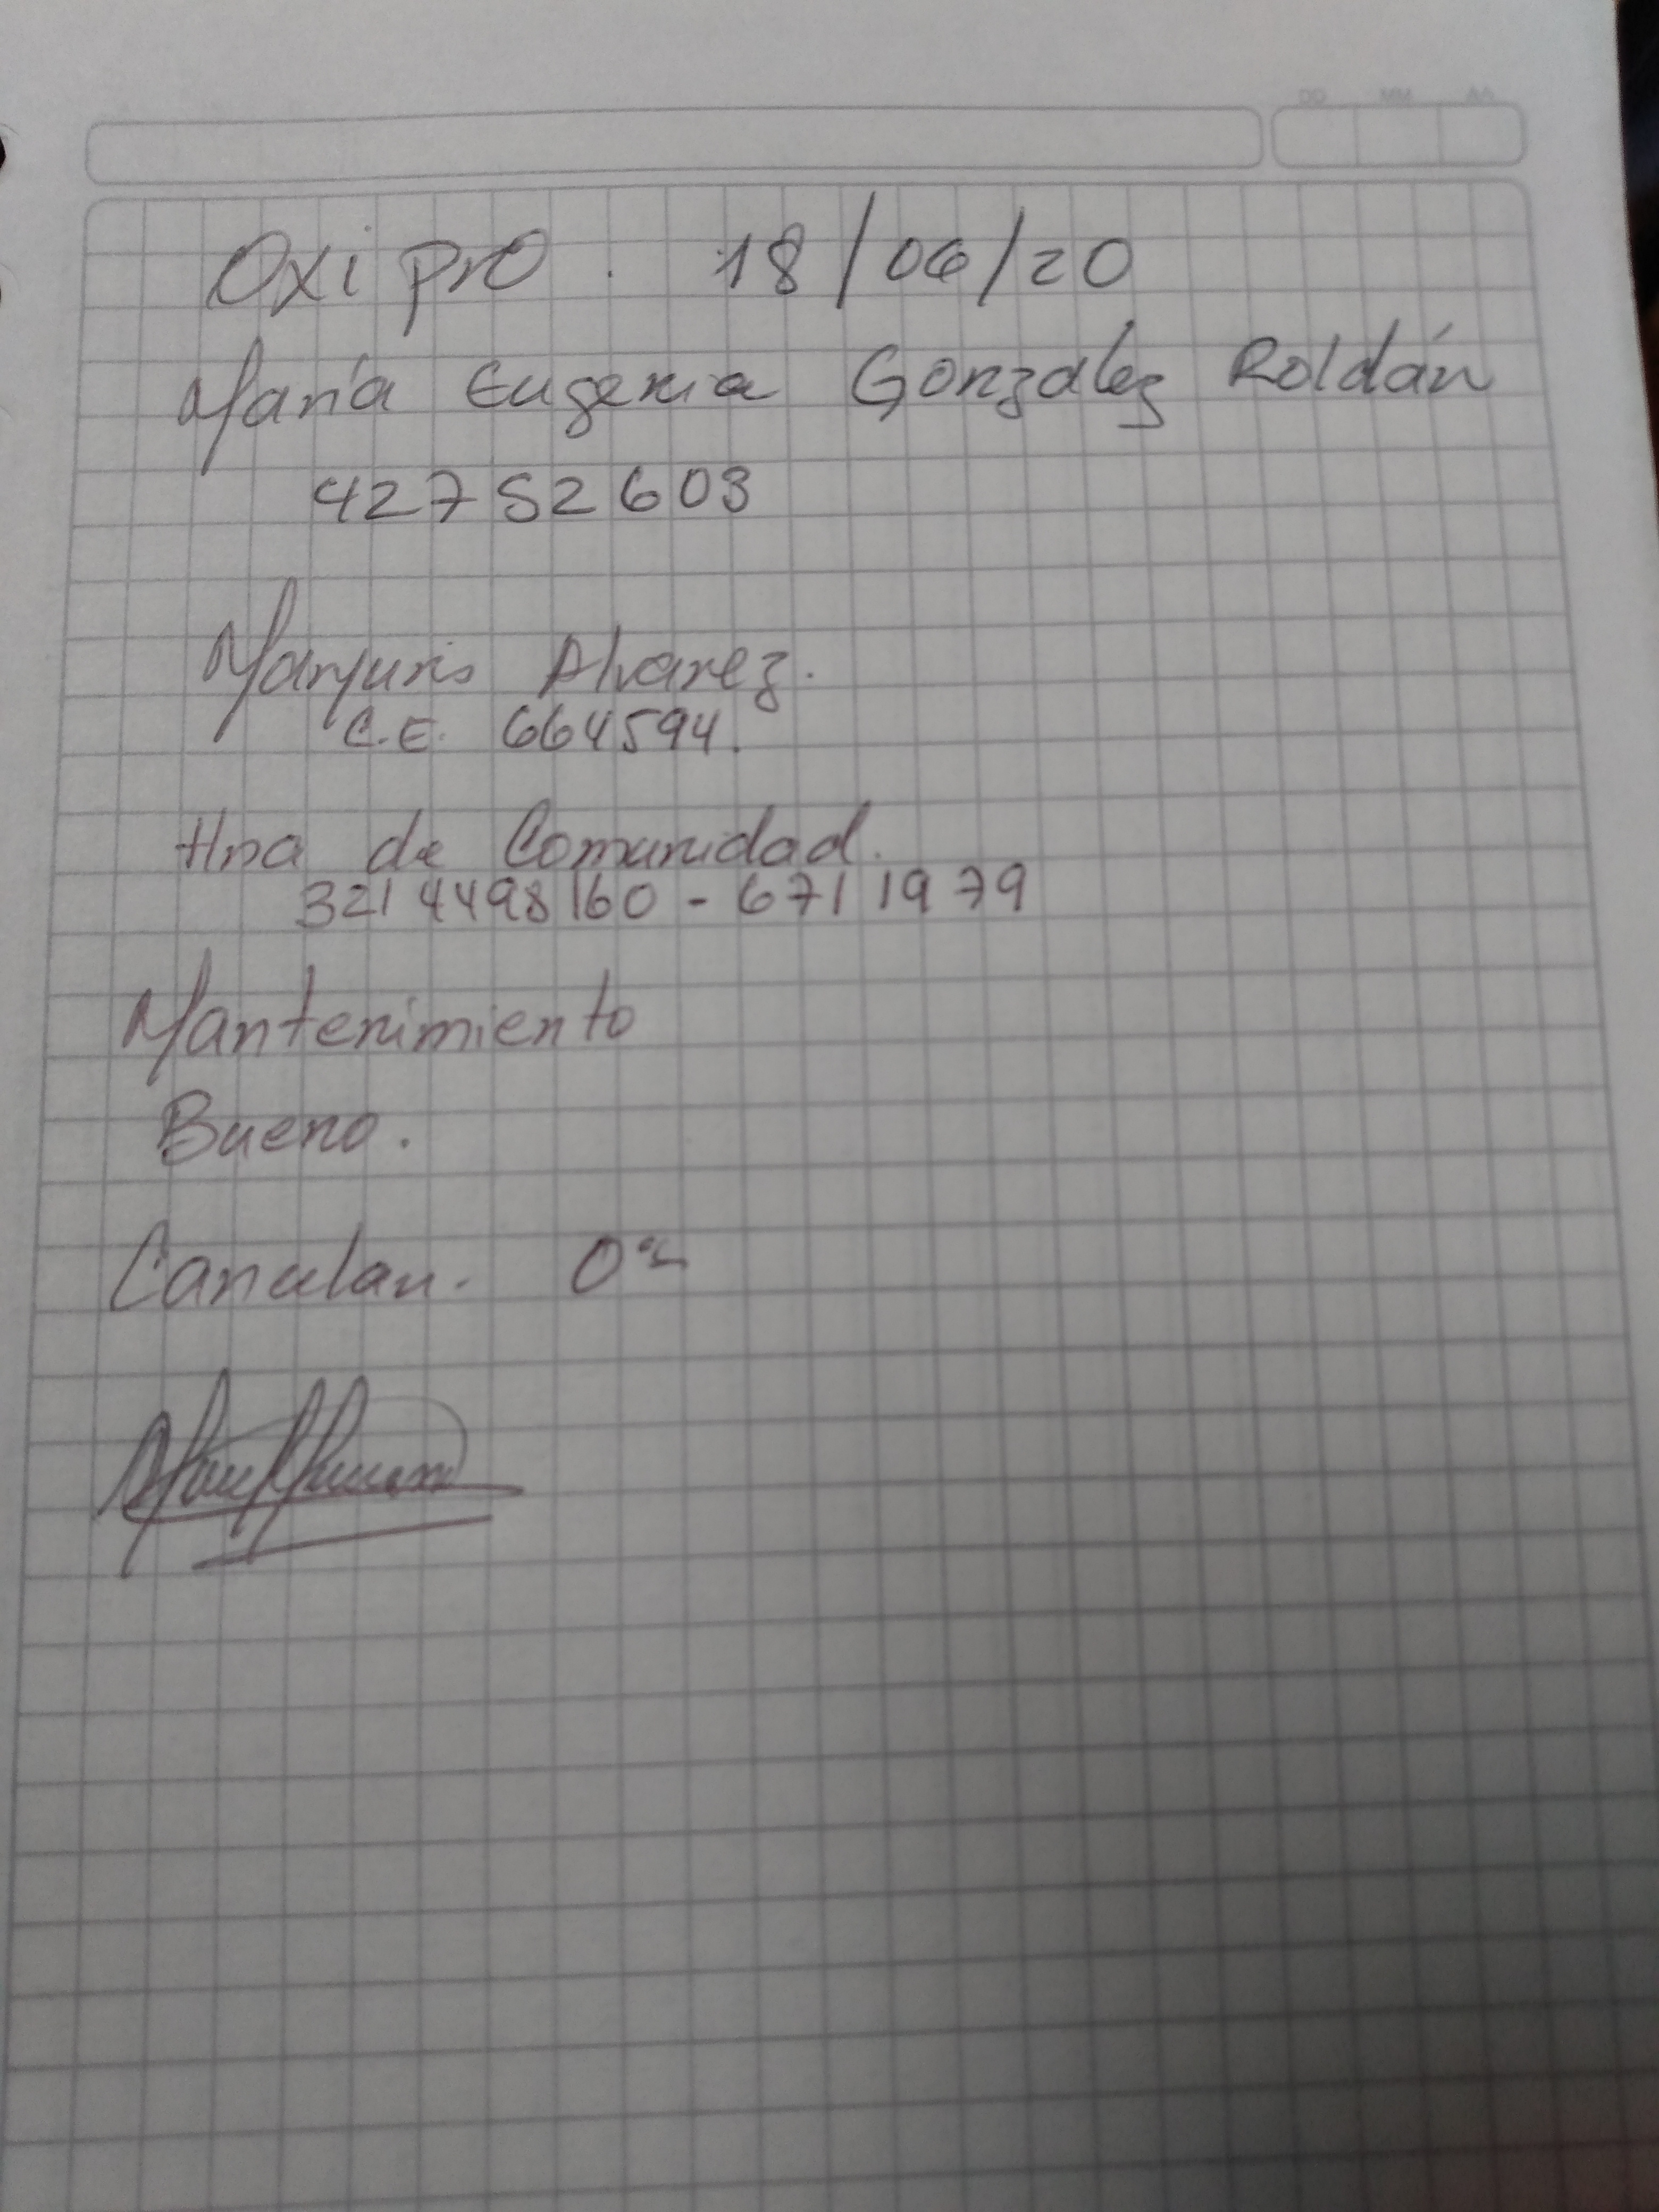 DD MM AA
Oxi pro . 18/06/20
María Eugenia Gonzalez Roldán
42752603
Maryuris Alvarez.
C.E. 664594.
Hna de Comunidad.
3214498160 - 6711979
Mantenimiento
Bueno.